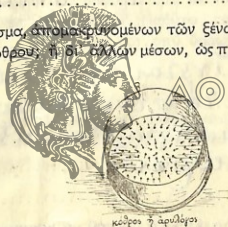 σμα, ἀπομακρυνομένων τῶν ξένω
θρου; ἢ δι' ἄλλων μέσων, ὡς π
ΑΘ
κόθρος ἢ ἀρυλόγος